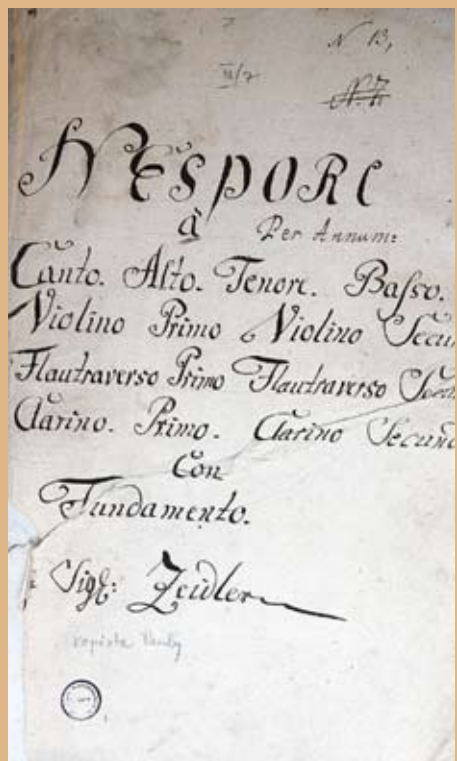 N 13,
II/7
VESPORE
à Per Annum:
Canto. Alto. Tenore. Basso.
Violino Primo Violino Secun
Flautraverso Primo Flautraverso
Clarino. Primo. Clarino Secund
Con
Fundamento.
Sigl: Zeidler
kopista